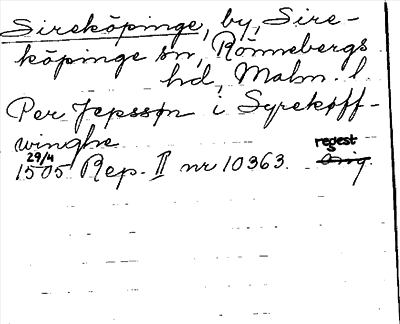 Sireköpinge, by, Sire-
köpinge sn, Rönnebergs
hd, Malm. l.
Per Jepsson i Syrekøff-
winghe
29/4 regest
1505 Rep. II nr 10363. Orig.